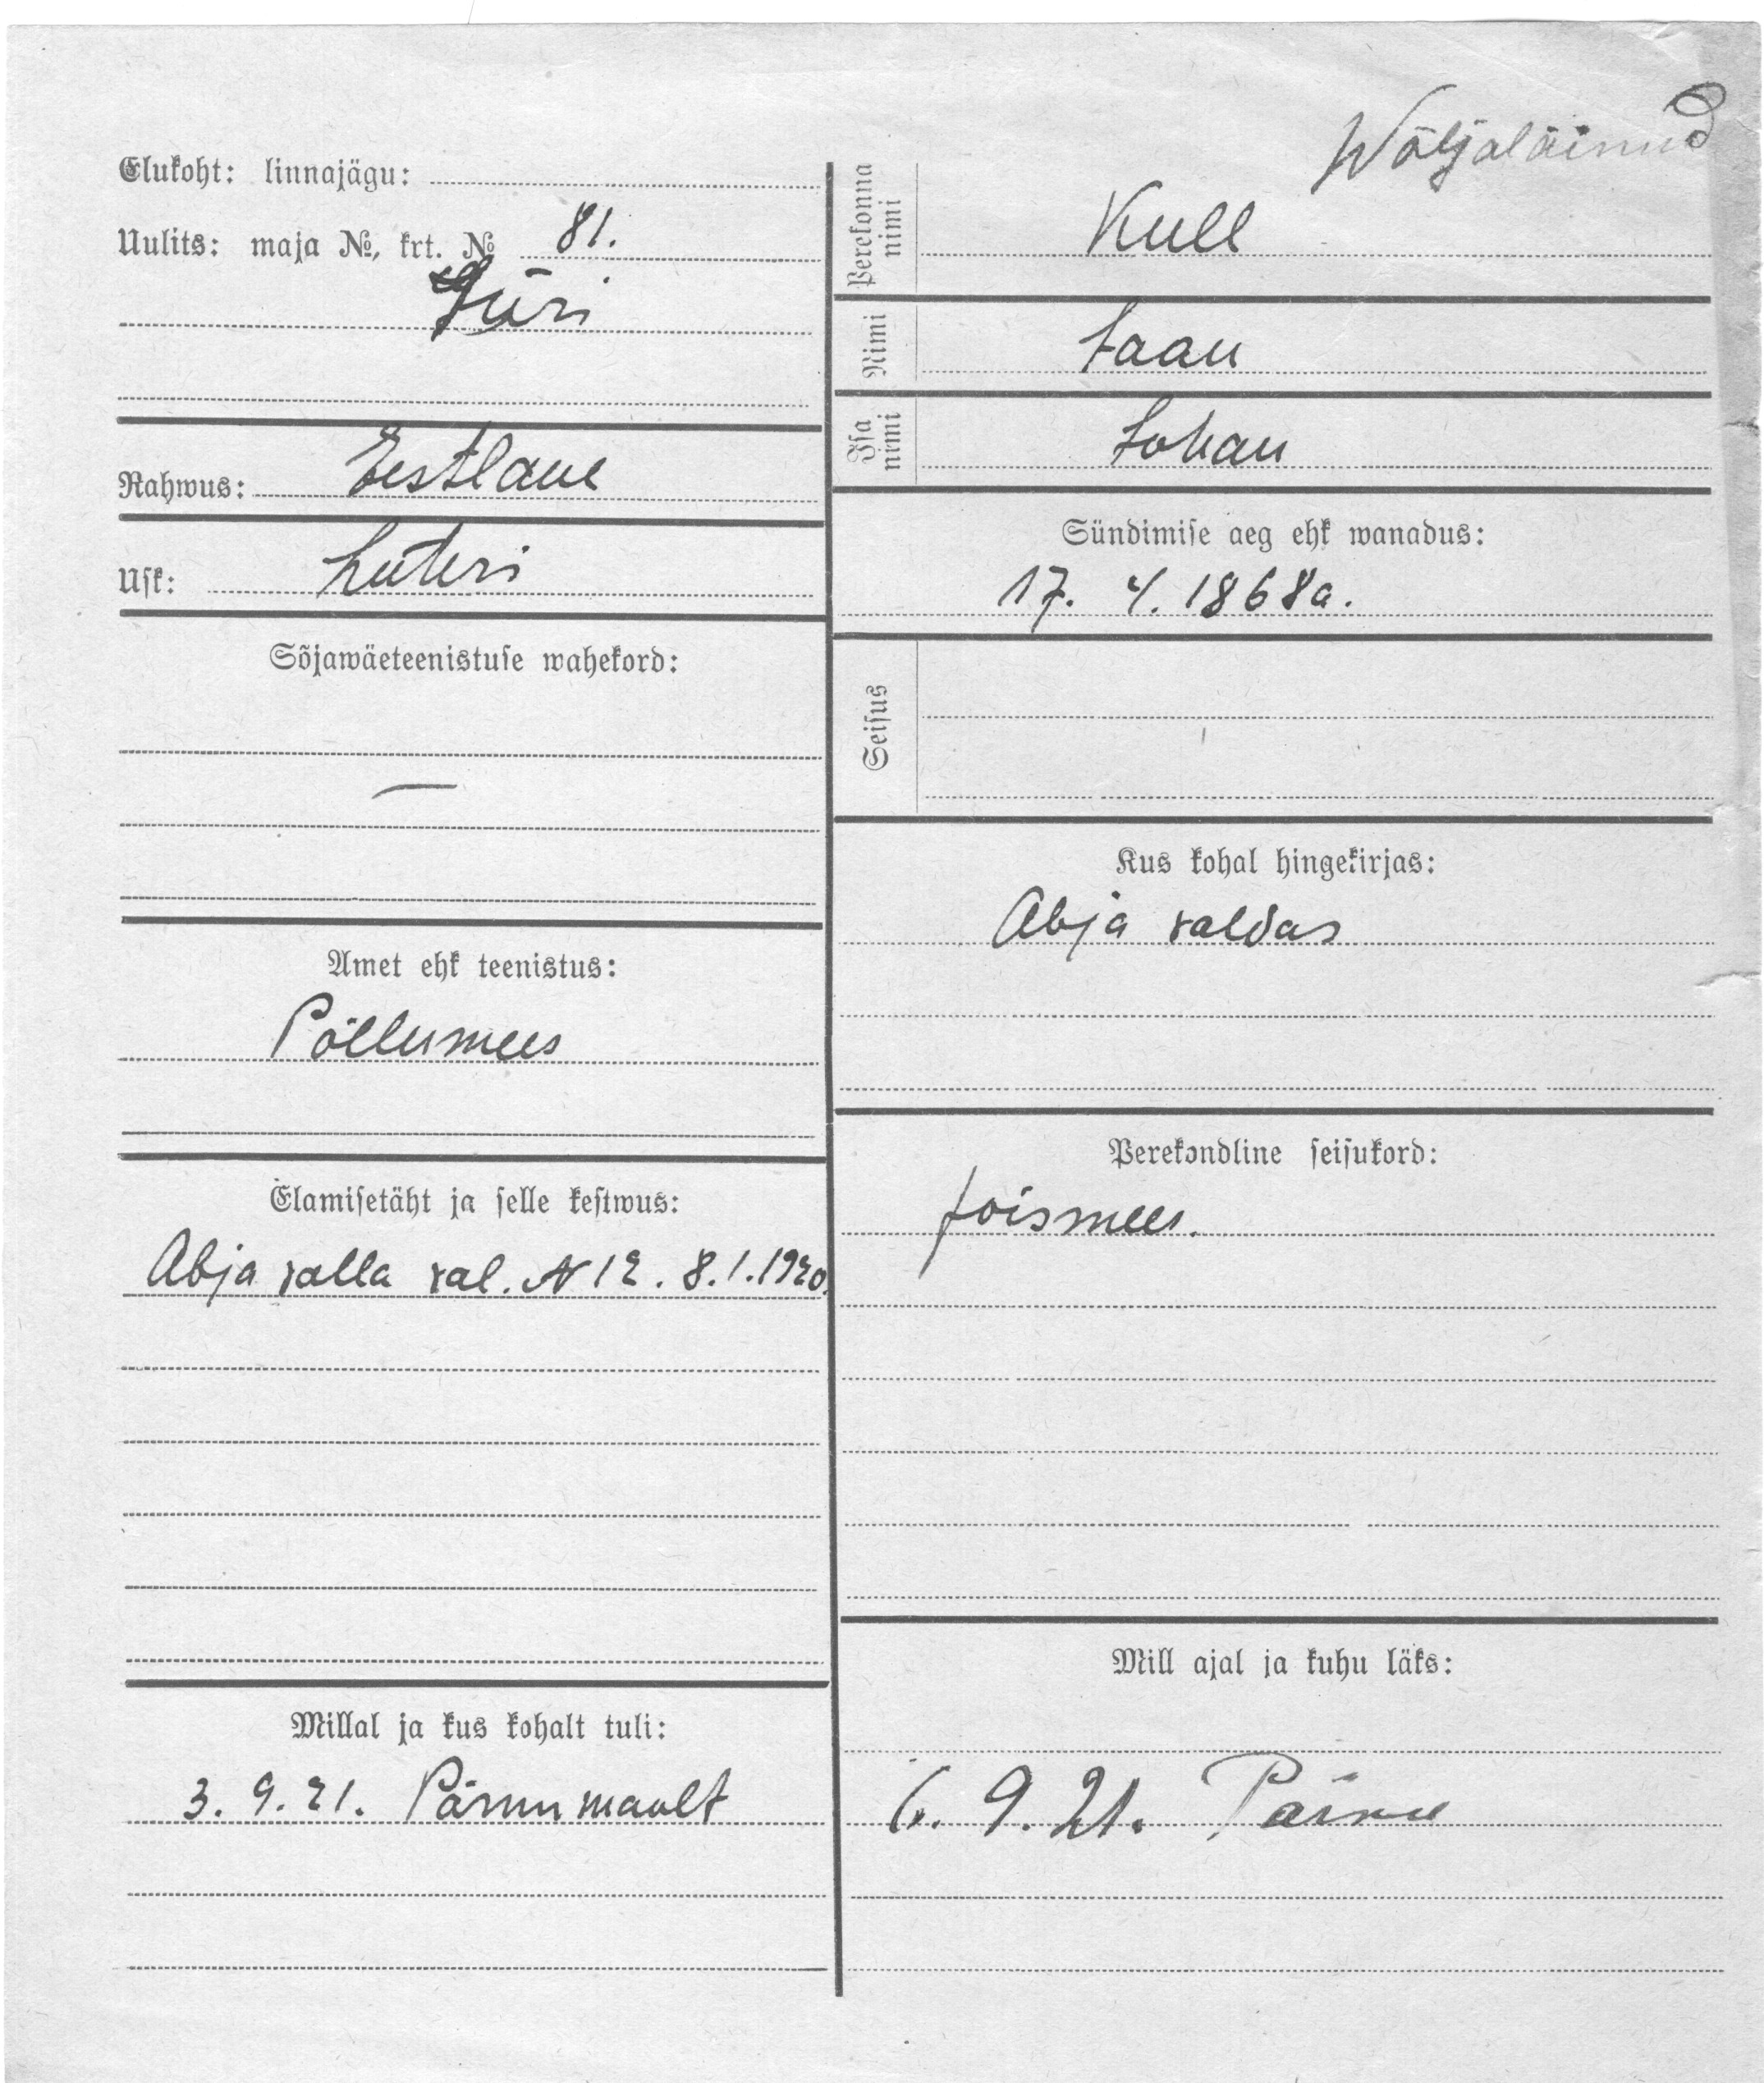 Wäljaläinud
Elukoht: linnajägu:
Uulits: maja №, krt. № 81.
Jüri
Rahwus: Eestlane
Usk: Luteri
Sõjawäeteenistuse wahekord:
—
Amet ehk teenistus:
Põllumees
Elamisetäht ja selle kestwus:
Abja valla val. N 12. 8.1.1920.
Millal ja kus kohalt tuli:
3. 9. 21. Pärnumaalt
Perekonna nimi Kull
Nimi Jaan
Isa nimi Johan
Sündimise aeg ehk wanadus:
17. 4. 1868a.
Seisus
Kus kohal hingekirjas:
Abja valdas
Perekondline seisukord:
poismees.
Mill ajal ja kuhu läks:
6. 9. 21. Pärnu